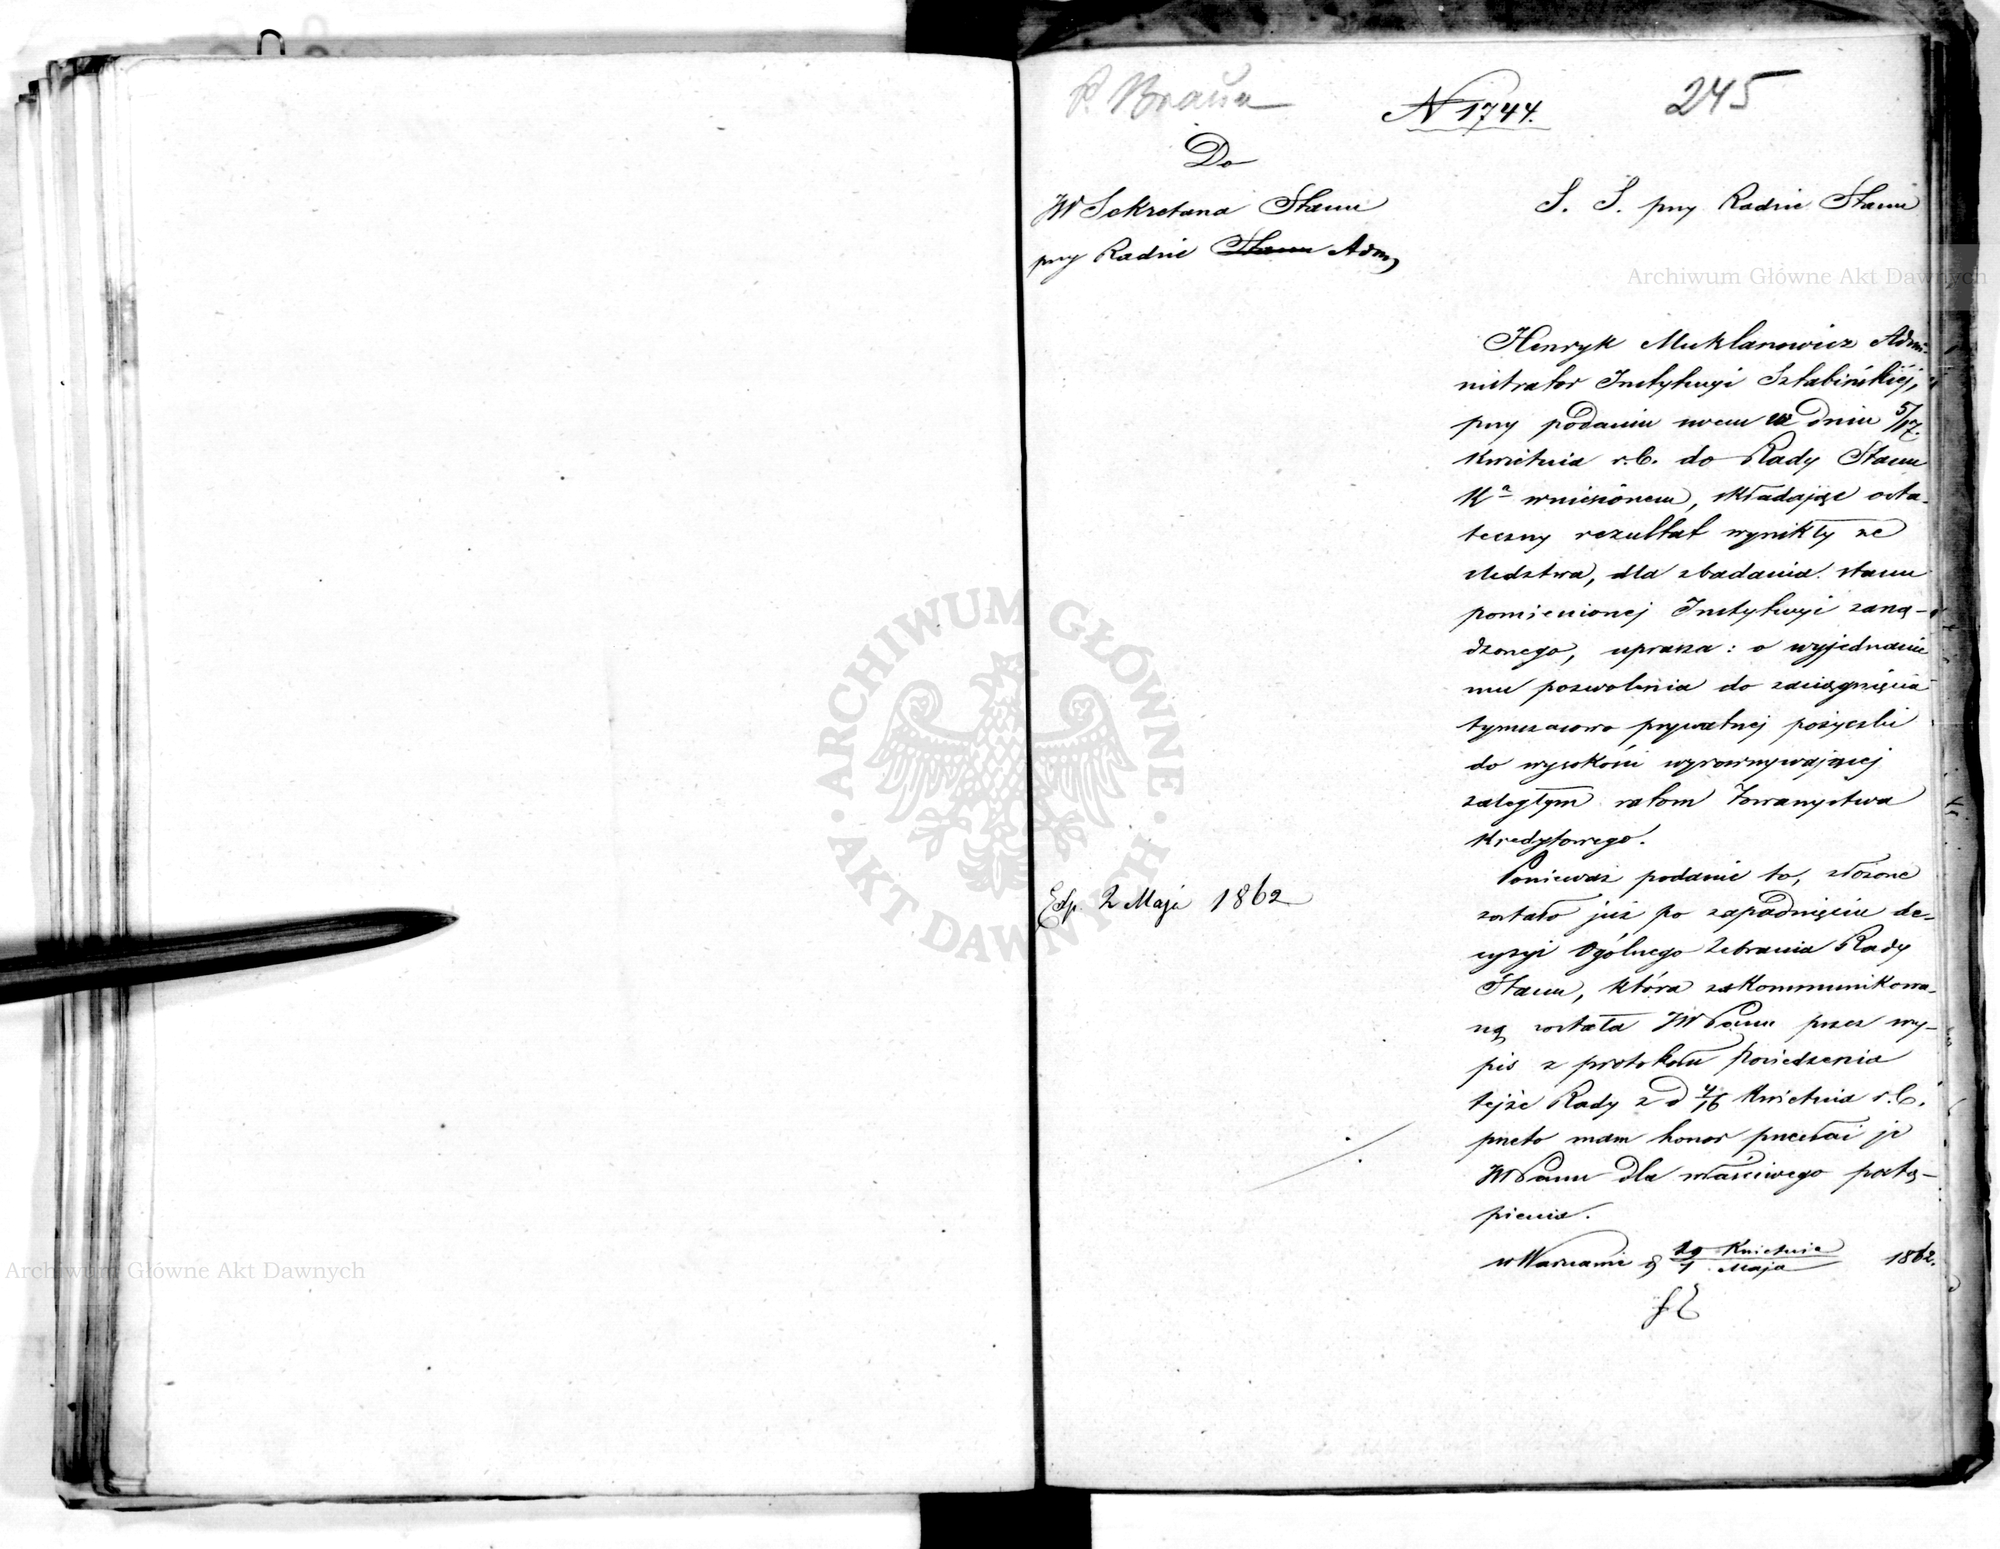 P. Braun
N 1744.
245
Do
JW Sekretarza Stanu
przy Radzie Stanu Admj
S. S. przy Radzie Stanu
Henryk Muklanowicz Admi-
nistrator Instytucyi Sztabińskiej,
przy podaniu swem w dniu 5/17.
Kwietnia r.b. do Rady Stanu
Kr wniesionem, składając osta-
teczny rezultat wynikły ze
śledztwa, dla zbadania stanu
pomienionej Instytucyi zarzą-
dzonego, uprasza: o wyjednanie
mu pozwolenia do zaciągnięcia
tymczasowo prywatnej pożyczki
do wysokości wyrównywającej
zaległym ratom Towarzystwa
Kredytowego.
Ponieważ podanie to, złożone
zostało już po zapadnięciu de-
cyzyi Ogólnego Zebrania Rady
Stanu, która zakommunikowa-
ną została JWPanu przez wy-
pis z protokołu Posiedzenia
tejże Rady z d 4/16 Kwietnia r.b.
przeto mam honor przesłać je
JWPanu dla właściwego postą-
pienia.
w Warszawie d 19 Kwietnia / 1 Maja 1862.
Exp. 2 Maja 1862
Archiwum Główne Akt Dawnych
Archiwum Główne Akt Dawnych
ARCHIWUM GŁÓWNE · AKT DAWNYCH ·